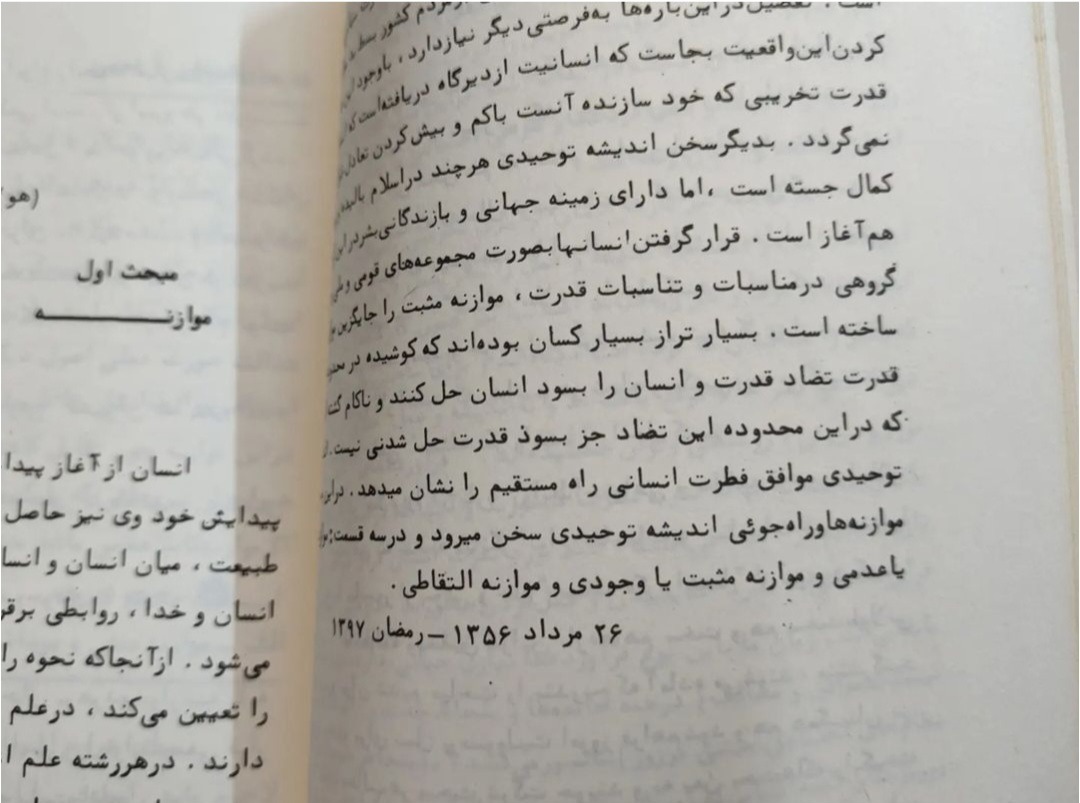 است . تفصیل دراین‌باره‌ها به‌فرصتی دیگر نیازدارد ، باوجود
کردن‌این‌واقعیت بجاست که انسانیت ازدیرگاه دریافته‌است که
قدرت تخریبی که خود سازنده آنست باکم و بیش‌کردن تعادل
نمی‌گردد . بدیگرسخن اندیشه توحیدی هرچند دراسلام بالیده
کمال جسته است ،اما دارای زمینه جهانی و بازندگانی‌بشردراین
هم‌آغاز است . قرار گرفتن‌انسانها‌بصورت مجموعه‌های قومی و
گروهی درمناسبات و تناسبات قدرت ، موازنه مثبت را جایگزین
ساخته است . بسیار تراز بسیار کسان بوده‌اند که‌کوشیده در
قدرت تضاد قدرت و انسان را بسود انسان حل کنند و ناکام
که دراین محدوده این تضاد جز بسوذ قدرت حل شدنی نیست.
توحیدی موافق فطرت انسانی راه مستقیم را نشان میدهد .
موازنه‌هاوراه‌جوئی اندیشه توحیدی سخن میرود و درسه قسمت:
یاعدمی و موازنه مثبت یا وجودی و موازنه التقاطی .
۲۶ مرداد ۱۳۵۶ – رمضان ۱۳۹۷
(هو
مبحث اول
موازنـــــــــــه
انسان از آغاز پیدا
پیدایش خود وی نیز حاصل
طبیعت ، میان انسان و انسا
انسان و خدا ، روابطی برقر
می‌شود . ازآنجاکه نحوه را
را تعیین می‌کند ، درعلم
دارند . درهررشته علم ا